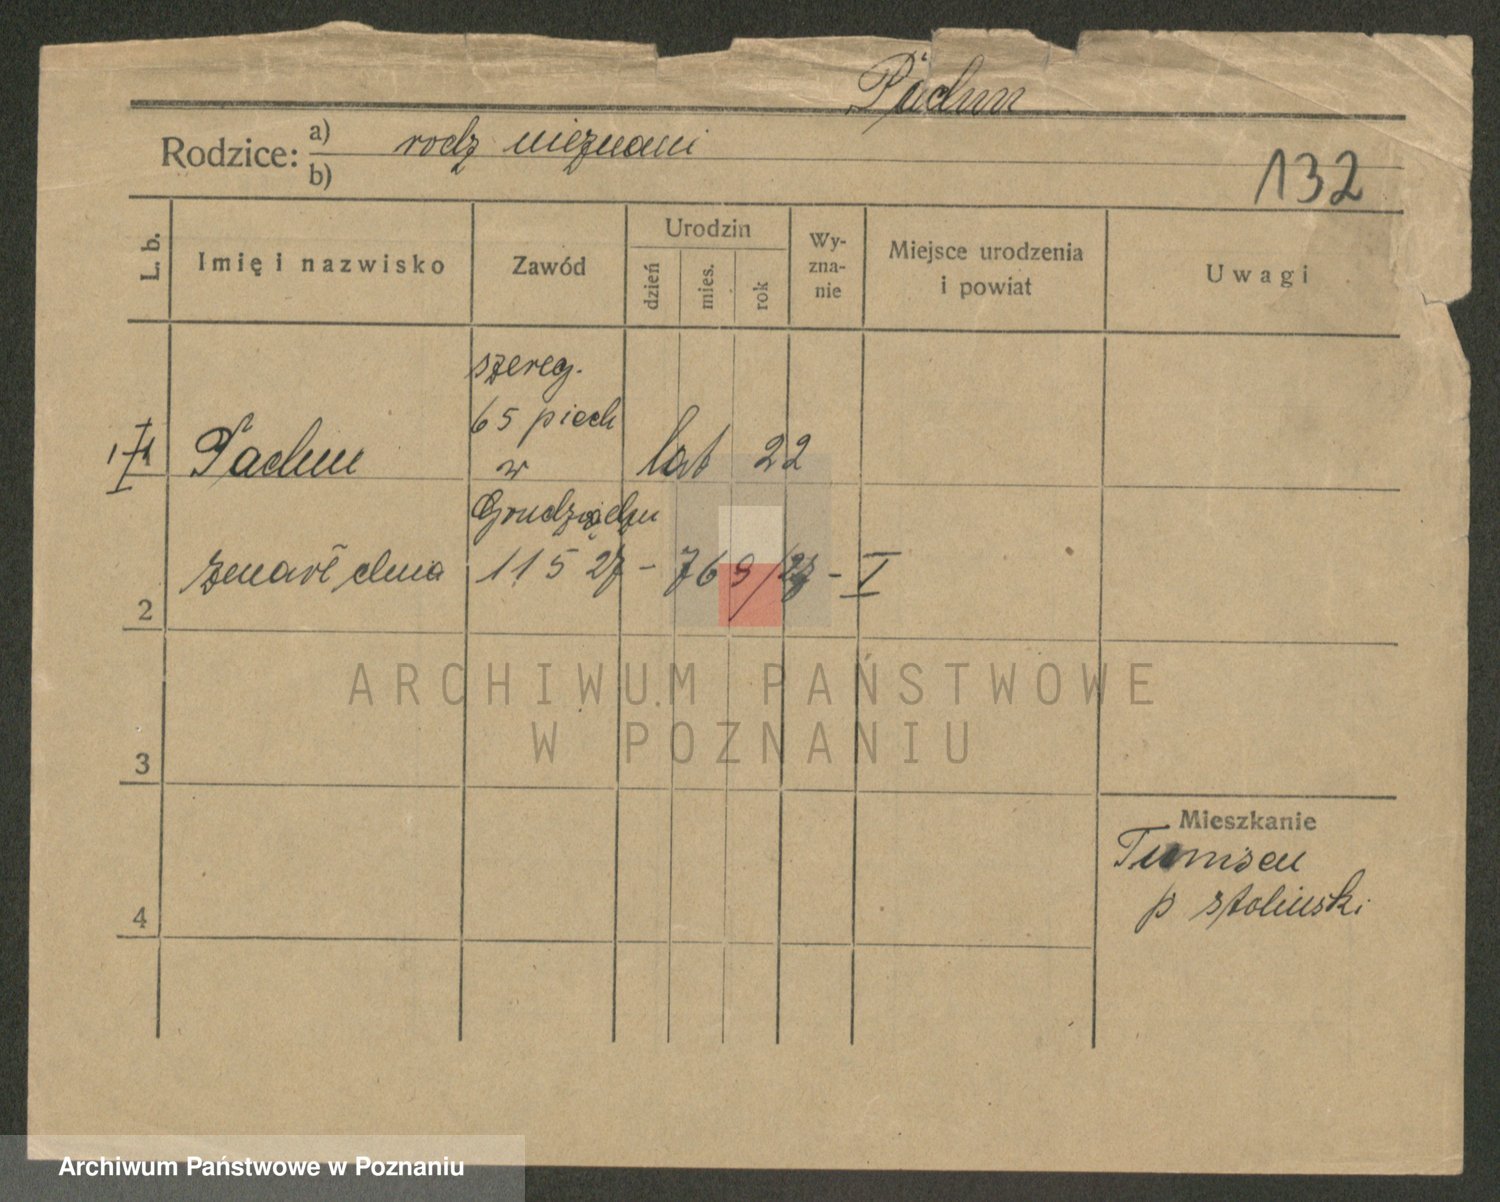 Pachm
Rodzice: a) rodz nieznani
b)
132
L. b.
Imię i nazwisko
Zawód
Urodzin
dzień
mies.
rok
Wy-
zna-
nie
Miejsce urodzenia
i powiat
Uwagi
szereg.
65 piech
1 Pachm w lat 22
Grudziądzu
2 zmarł dnia 11 5 27 - 769/27 - I
3
4
Mieszkanie
p stoliński
ARCHIWUM PAŃSTWOWE
W POZNANIU
Archiwum Państwowe w Poznaniu